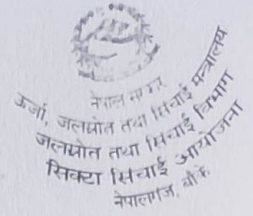 नेपाल सरकार
ऊर्जा, जलस्रोत तथा सिंचाई मन्त्रालय
जलस्रोत तथा सिंचाई विभाग
सिक्टा सिंचाई आयोजना
नेपालगंज, बाँके